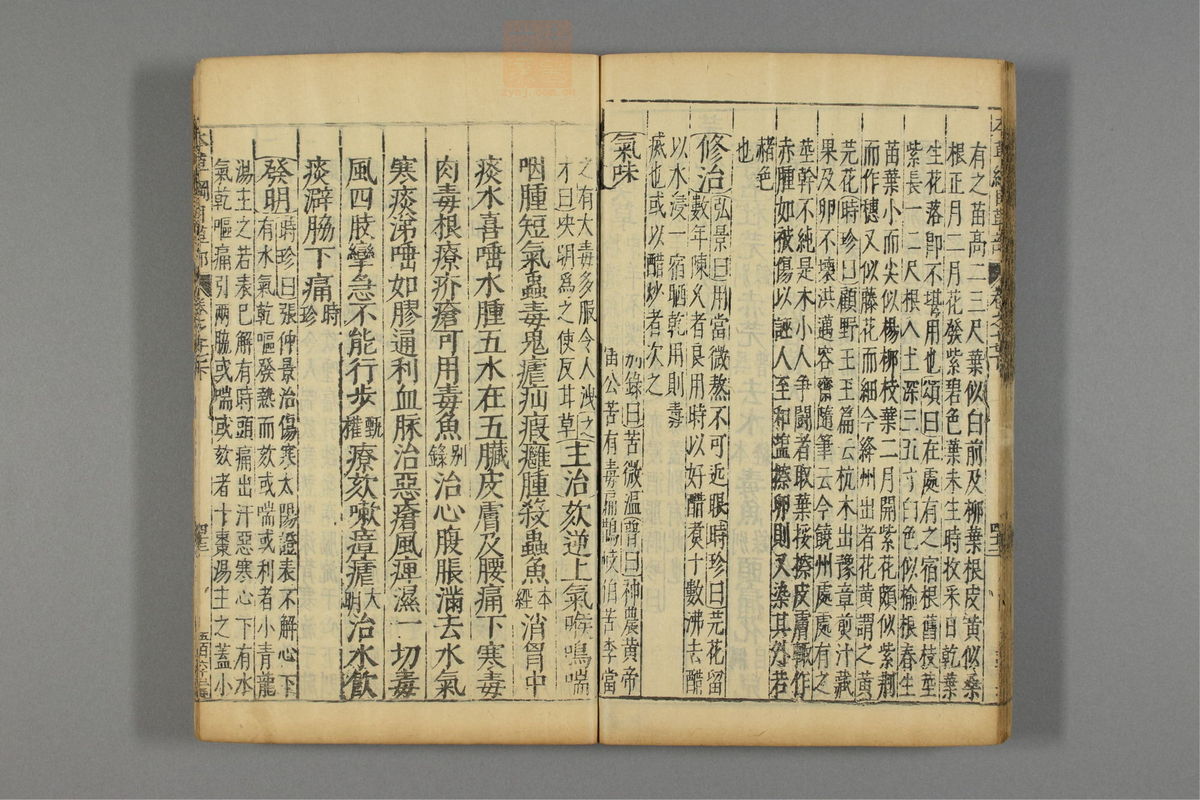 有之苗高二三尺葉似白前及柳葉根皮黃似桑
根正月二月花發紫碧色葉未生時收采日乾葉
生花落卽不堪用也頌曰在處有之宿根舊枝莖
紫長一二尺根入土深三五寸白色似楡根春生
苗葉小而尖似楊柳枝葉二月開紫花頗似紫荆
而作穗又似藤花而細今絳州出者花黃謂之黃
芫花時珍曰顧野王玉篇云杬木出豫章煎汁藏
果及卵不壞洪邁容齋隨筆云今饒州處處有之
莖幹不純是木小人爭鬪者取葉挼擦皮膚輒作
赤腫如被傷以誣人至和鹽擦卵則又染其外若
赭色
也
修治弘景曰用當微熬不可近眼時珍曰芫花留
數年陳久者良用時以好醋煑十數沸去醋
以水浸一宿晒乾用則毒
滅也或以醋炒者次之
氣味
別錄曰苦微溫普曰神農黃帝
雷公苦有毒扁鵲岐伯苦李當
之有大毒多服令人洩之
才曰決明爲之使反甘草
主治欬逆上氣喉鳴喘
咽腫短氣蠱毒鬼瘧疝瘕癰腫殺蟲魚本經消胷中
痰水喜唾水腫五水在五臟皮膚及腰痛下寒毒
肉毒根療疥瘡可用毒魚別錄治心腹脹滿去水氣
寒痰涕唾如膠通利血脉治惡瘡風痺濕一切毒
風四肢攣急不能行步甄權療欬嗽瘴瘧大明治水飲
痰澼脇下痛時珍
發明時珍曰張仲景治傷寒太陽證表不解心下
有水氣乾嘔發熱而欬或喘或利者小青龍
湯主之若表已解有時頭痛出汗惡寒心下有水
氣乾嘔痛引兩脇或喘或欬者十棗湯主之蓋小